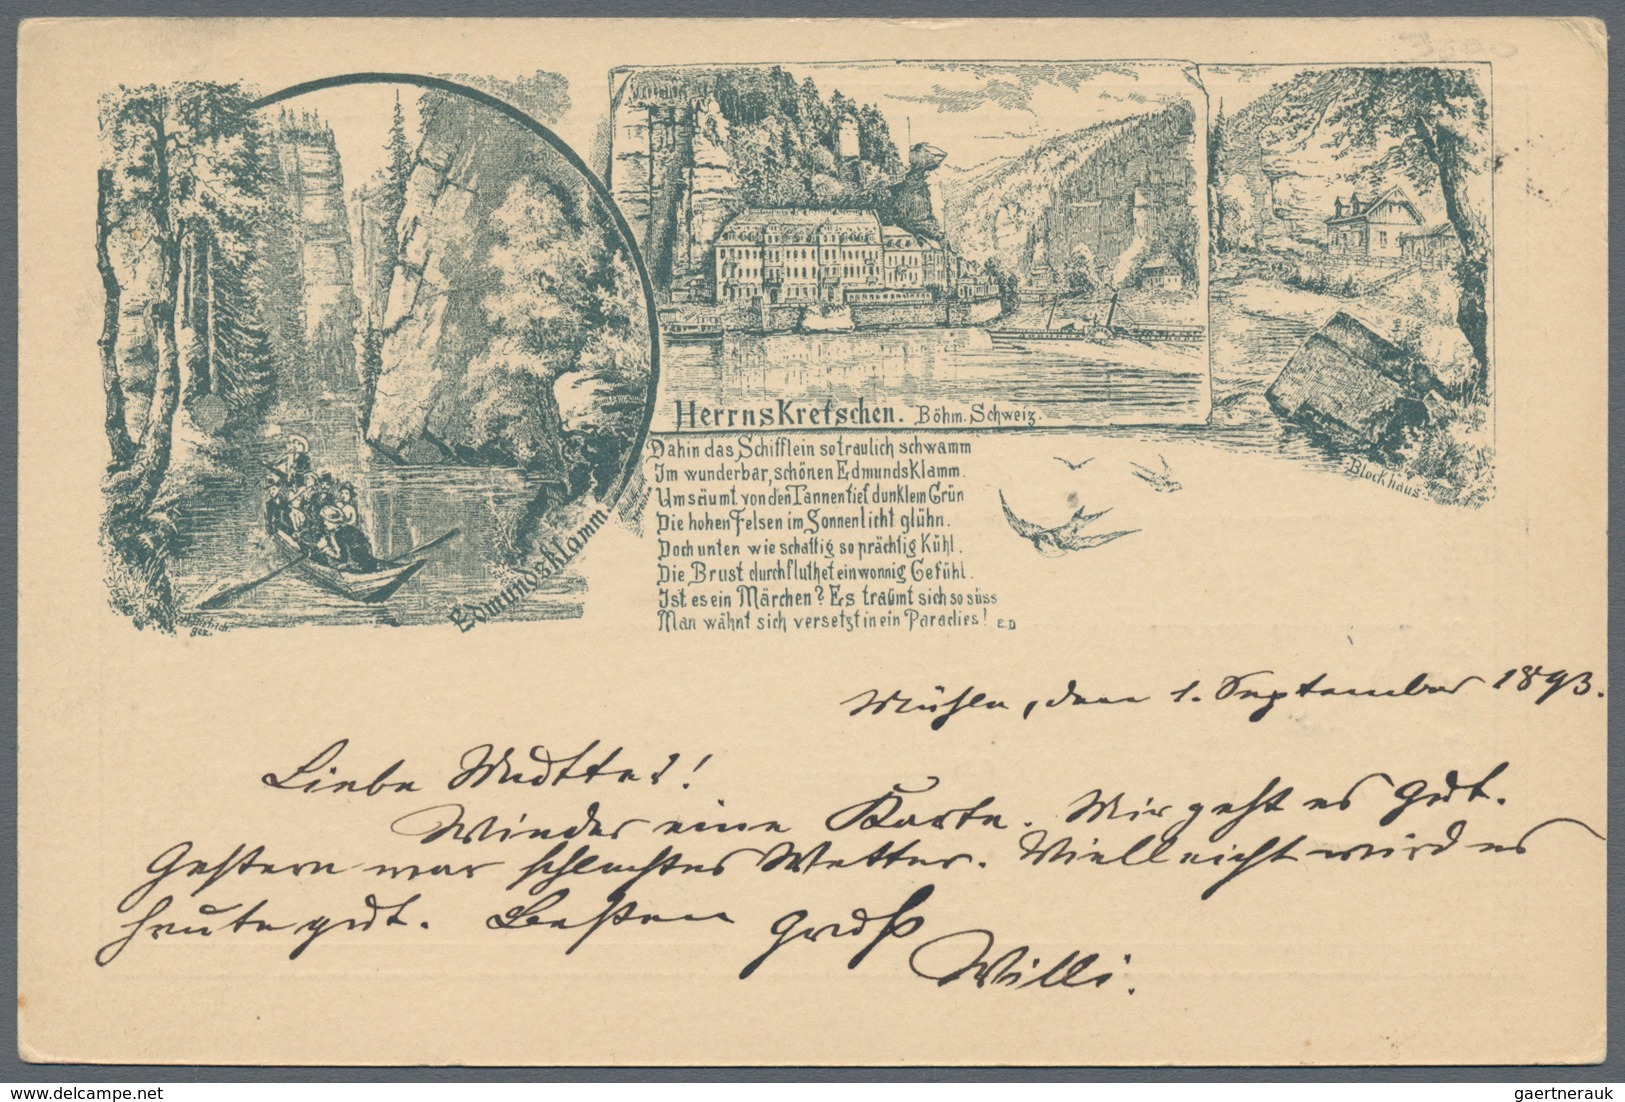 HerrnsKretschen. Böhm. Schweiz.
Dahin das Schifflein so traulich schwamm
Im wunderbar, schönen EdmundsKlamm.
Umsäumt von den Tannen tief dunklem Grün
Die hohen Felsen im Sonnenlicht glühn.
Doch unten wie schattig so prächtig Kühl.
Die Brust durchfluthet ein wonnig Gefühl.
Ist es ein Märchen? Es träumt sich so süss
Man wähnt sich versetzt in ein Paradies! E.D
Edmundsklamm.
Blockhaus.
gez.
Mühle, den 1. September 1893.
Liebe Mutter!
Wieder eine Karte. Mir geht es gut.
Gestern war schlechtes Wetter. Vielleicht wird es
heute gut. Besten Gruß
Willi.
delcampe.net
gaertnerauk